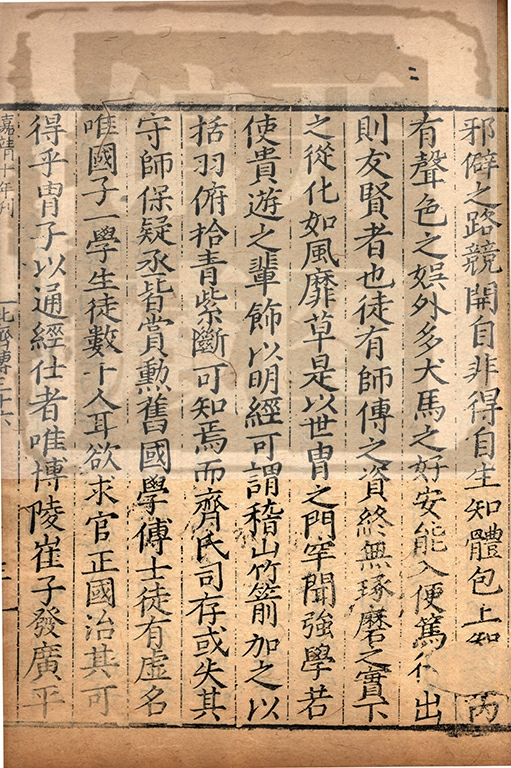 邪僻之路競開自非得自生知體包上知丙
有聲色之娛外多犬馬之好安能入便篤行出
則友賢者也徒有師傅之資終無琢磨之實下
之從化如風靡草是以世胄之門罕聞強學若
使貴遊之輩飾以明經可謂稽山竹箭加之以
括羽俯拾青紫斷可知焉而齊氏司存或失其
守師保疑丞皆賞勳舊國學博士徒有虛名
唯國子一學生徒數十人耳欲求官正國治其可
得乎胄子以通經仕者唯博陵崔子發廣平
嘉靖十年刊
北齊傳三十六